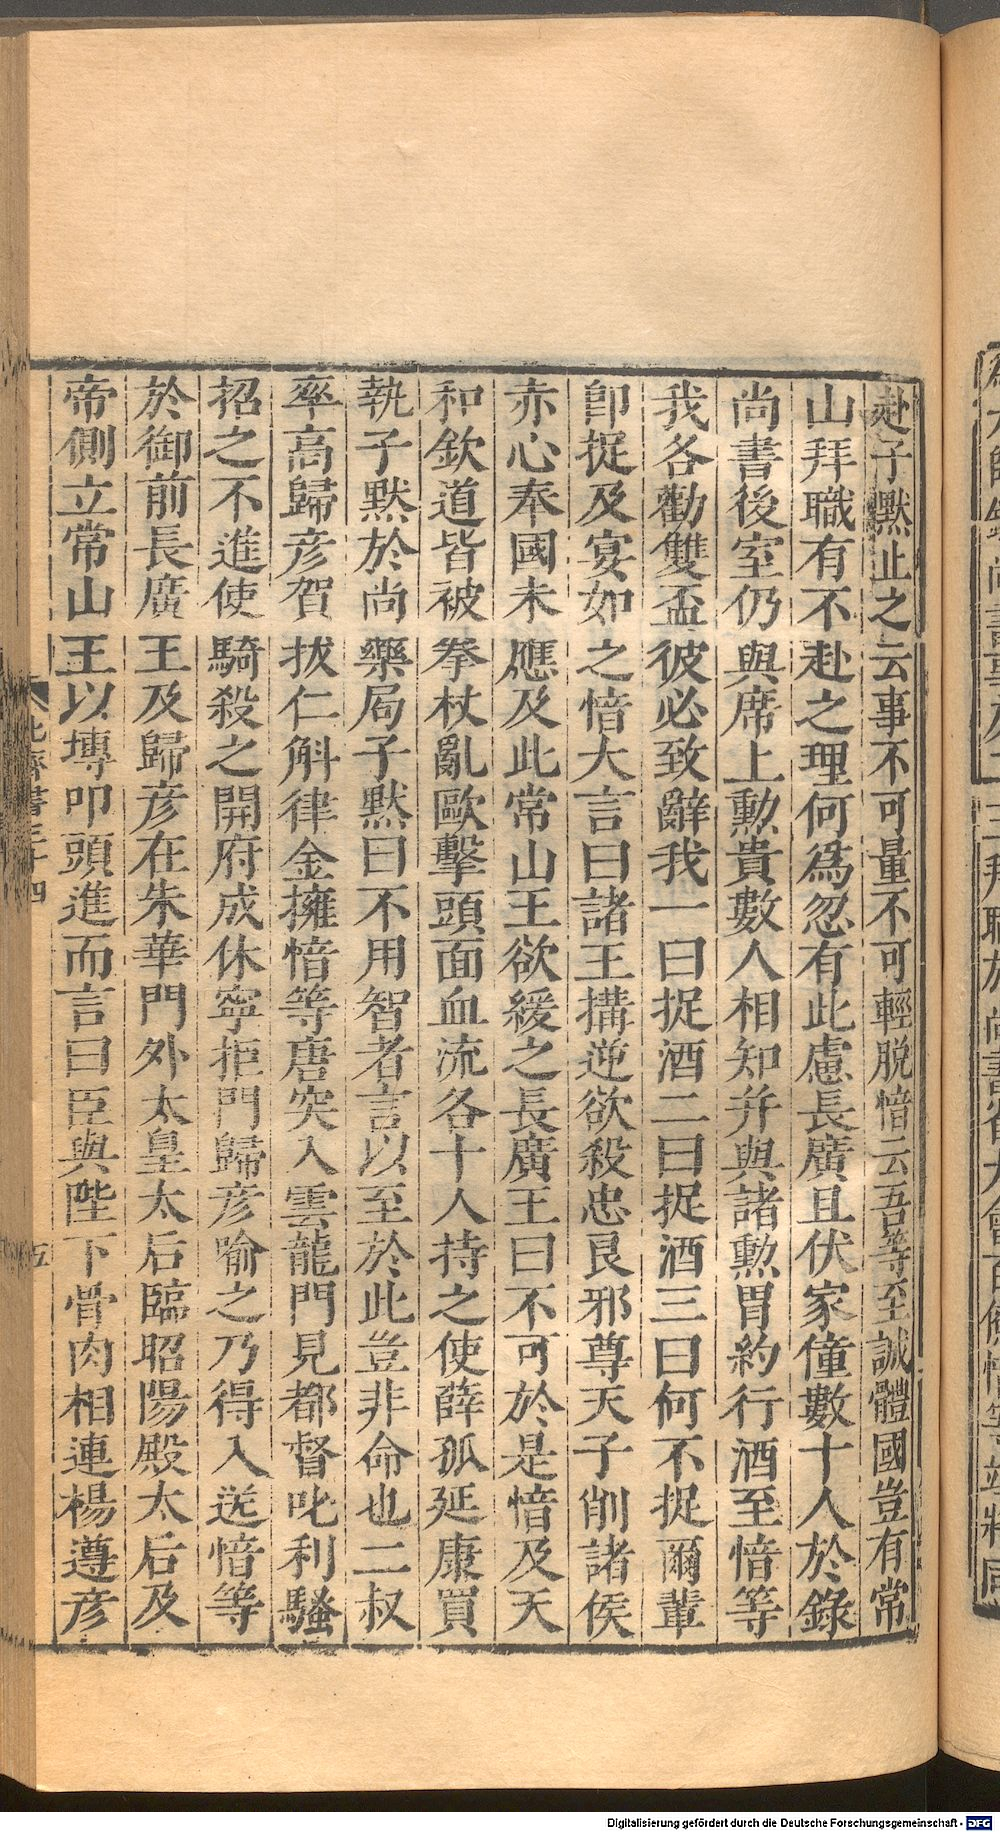 赴子默止之云事不可量不可輕脫愔云吾等至誠體國豈有常
山拜職有不赴之理何爲忽有此慮長廣且伏家僮數十人於錄
尚書後室仍與席上勳貴數人相知并與諸勳胄約行酒至愔等
我各勸雙盃彼必致辭我一曰捉酒二曰捉酒三曰何不捉爾輩
卽捉及宴如之愔大言曰諸王搆逆欲殺忠良邪尊天子削諸侯
赤心奉國未應及此常山王欲緩之長廣王曰不可於是愔及天
和欽道皆被拳杖亂歐擊頭面血流各十人持之使薛孤延康買
執子默於尚藥局子默曰不用智者言以至於此豈非命也二叔
率高歸彥賀拔仁斛律金擁愔等唐突入雲龍門見都督叱利騷
招之不進使騎殺之開府成休寧拒門歸彥喻之乃得入送愔等
於御前長廣王及歸彥在朱華門外太皇太后臨昭陽殿太后及
帝側立常山王以塼叩頭進而言曰臣與陛下骨肉相連楊遵彥
北齊書三十四 五
Digitalisierung gefördert durch die Deutsche Forschungsgemeinschaft - DFG